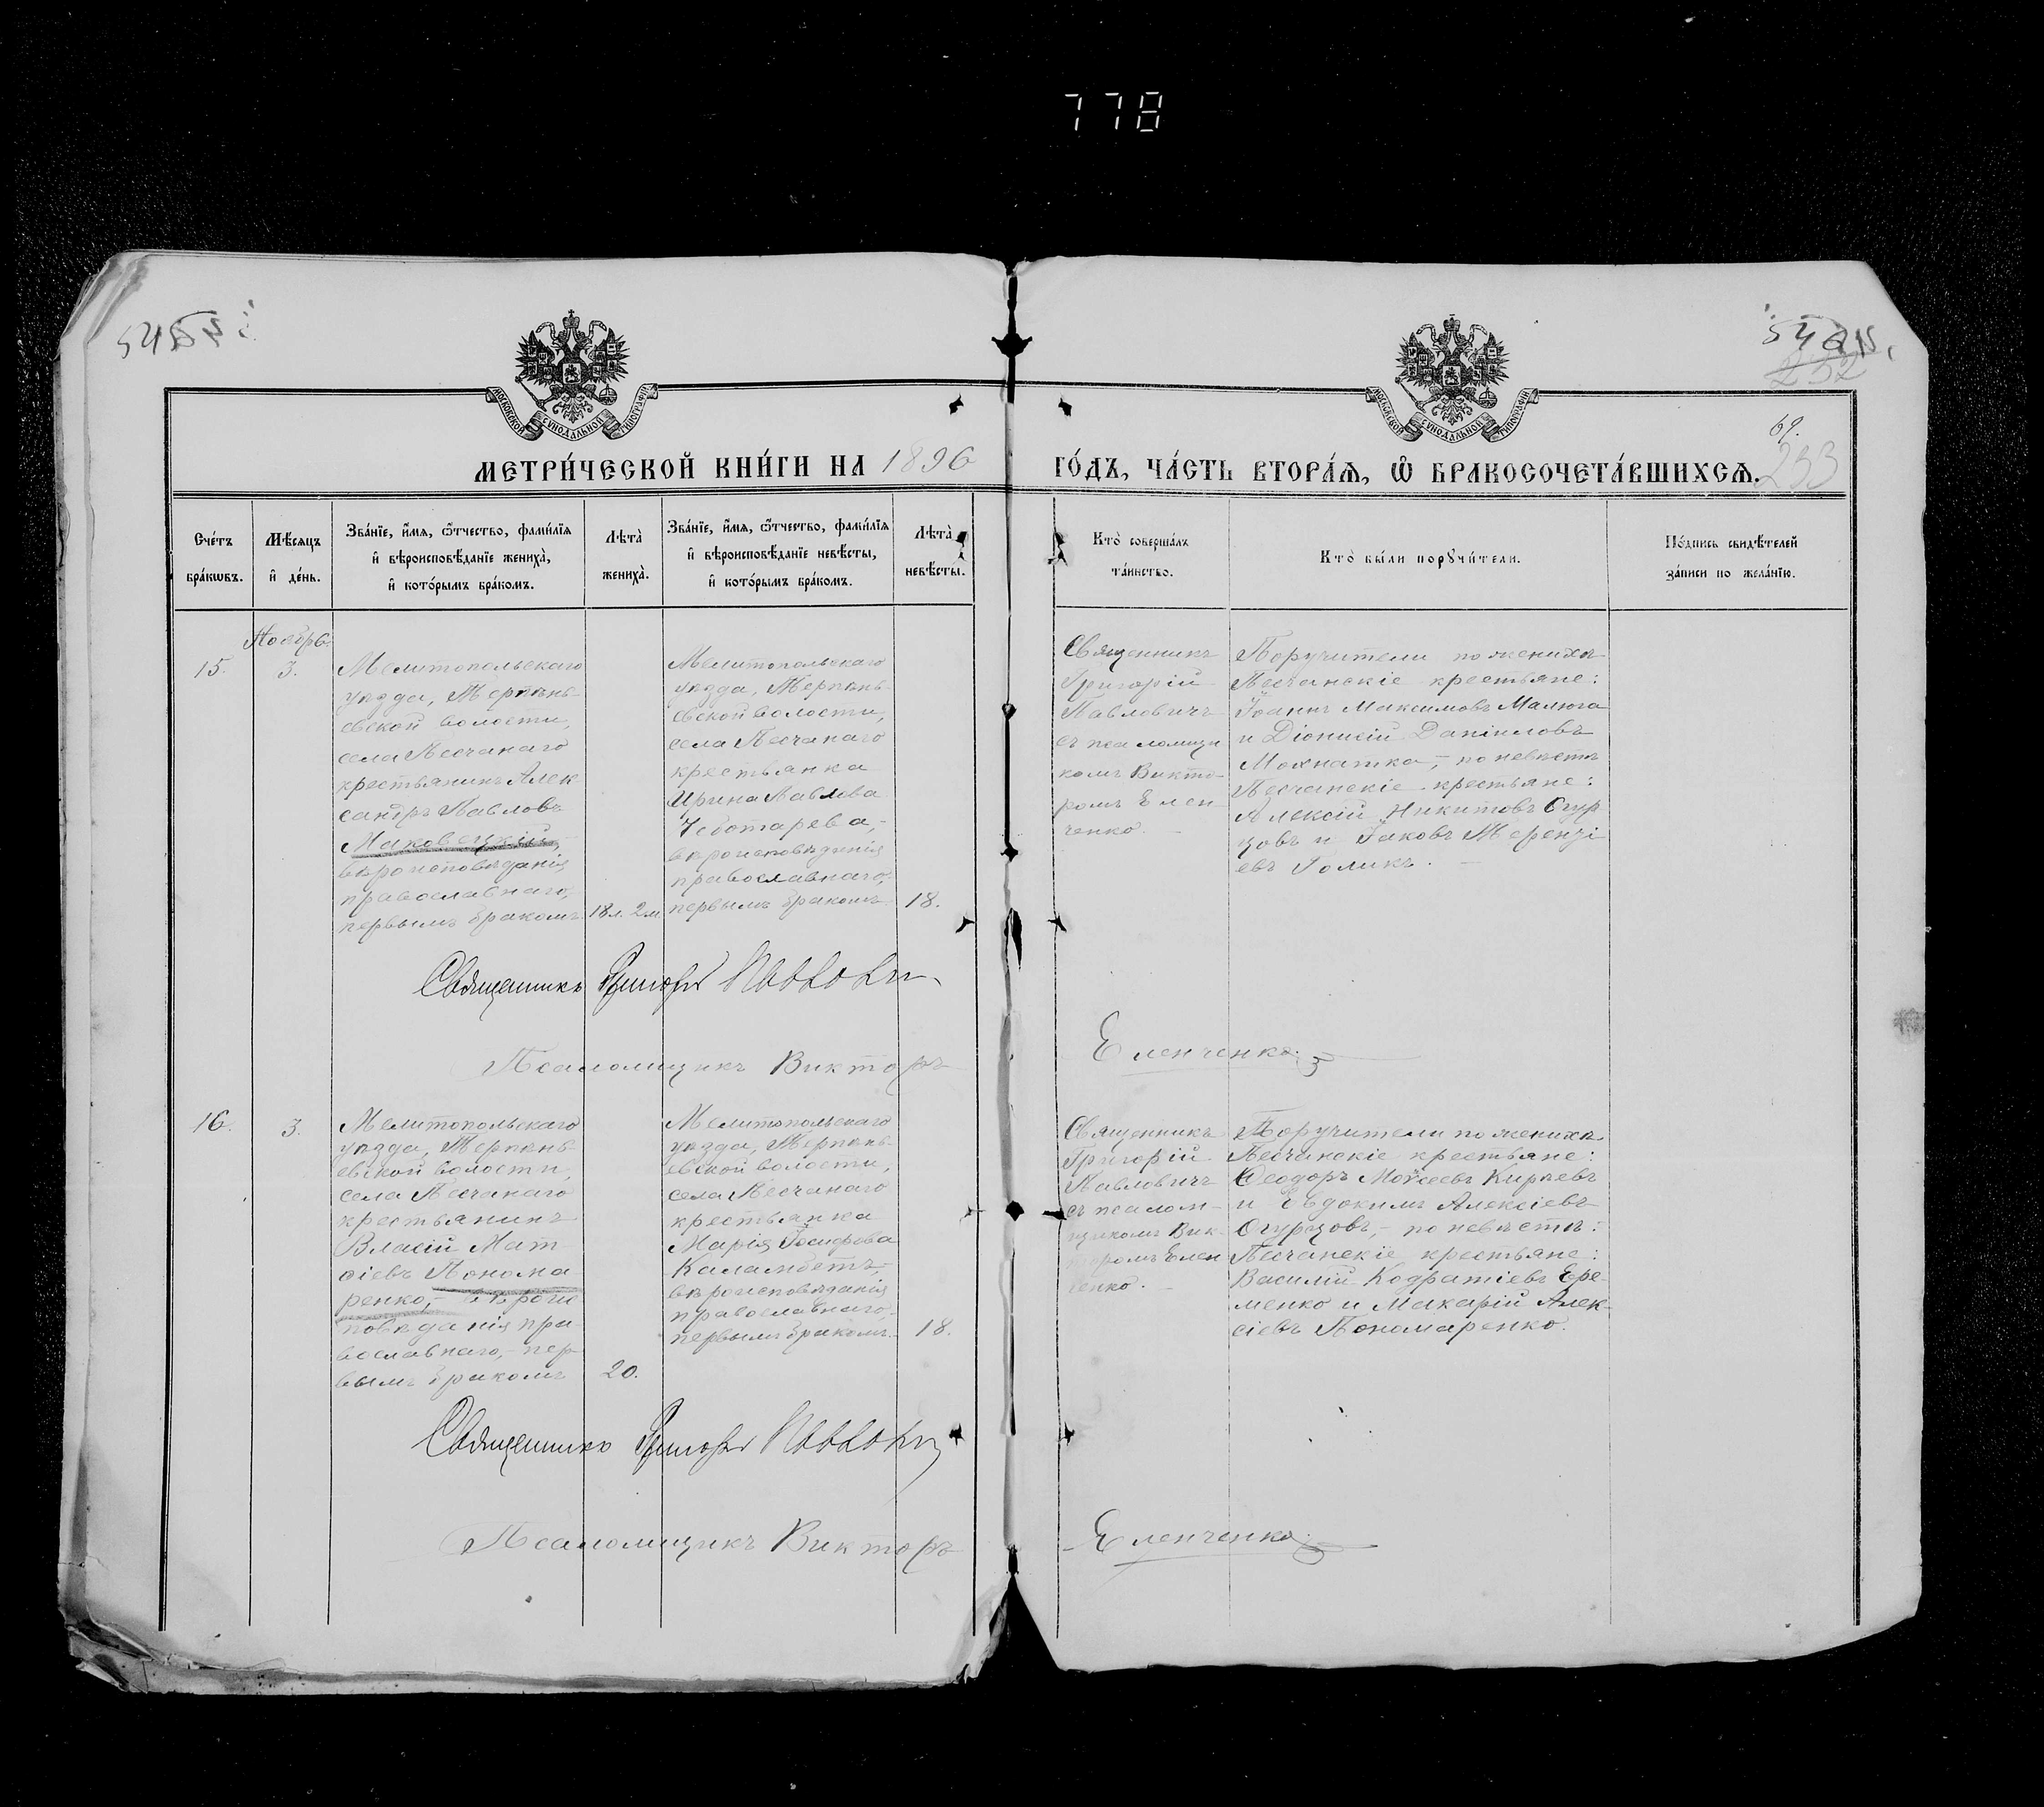 778
МОСКОВСКОЙ СѴНОДАЛЬНОЙ ТИПОГРАФІИ
МОСКОВСКОЙ СѴНОДАЛЬНОЙ ТИПОГРАФІИ
252
69.
233
МЕТРИ́ЧЕСКОЙ КНИ́ГИ НА 1896
ГО́ДЪ, ЧА́СТЬ ВТОРА́Ѧ, Ѡ҆ БРАКОСОЧЕТА́ВШИХСѦ.
Сче́тъ
бра́кѡвъ.
Мѣ́сѧцъ
и҆ де́нь.
Зва́нїе, и҆́мѧ, ѻ҆́тчество, фами́лїѧ
и҆ вѣроисповѣ́данїе жениха̀,
и҆ кото́рымъ бра́комъ.
Лѣта̀
жениха̀.
Зва́нїе, и҆́мѧ, ѻ҆́тчество, фами́лїѧ
и҆ вѣроисповѣ́данїе невѣ́сты,
и҆ кото́рымъ бра́комъ.
Лѣта̀
невѣ́сты.
Кто̀ соверша́лъ
та́инство.
Кто̀ бы́ли порꙋчи́тели.
По́дпись свидѣ́телей
за́писи по жела́нїю.
Ноябрь
15.
3.
Мелитопольскаго
уѣзда, Терпѣнь-
евской волости,
села Песчанаго
крестьянинъ Алек
сандръ Павловъ
Маковецкій,
вѣроисповѣданія
православнаго,
первымъ бракомъ
18 л. 2 м
Мелитопольскаго
уѣзда, Терпѣнь-
евской волости,
села Песчанаго
крестьянка
Ирина Павлова
Чеботарева,-
вѣроисповѣданія
православнаго,
первымъ бракомъ.
18.
Священникъ
Григорій
Павловичъ
съ псаломщи
комъ Викто-
ромъ Елен
ченко. -
Поручители по женихѣ
Песчанскіе крестьяне:
Іоаннъ Максимовъ Малюга
и Діонисій Даніиловъ
Мохнатка,- по невѣстѣ
Песчанскіе крестьяне:
Алексій Никитовъ Огур
цовъ и Іаковъ Терензі
евъ Голикъ. -
Священникъ Григорій Павлович
Псаломщикъ Викторъ
Еленченко.
16.
3.
Мелитопольскаго
уѣзда, Терпѣнь-
евской волости,
села Песчанаго
крестьянинъ
Власій Мат
ѳіевъ Понома
ренко,- вѣроис
повѣданія пра-
вославнаго,- пер-
вымъ бракомъ
20.
Мелитопольскаго
уѣзда, Терпѣнь-
евской волости,
села Песчанаго
крестьянка
Марія Іосифова
Каламбетъ,-
вѣроисповѣданія
православнаго,
первымъ бракомъ.
18.
Священникъ
Григорій
Павловичъ
съ псалом-
щикомъ Вик-
торомъ Елен
ченко. -
Поручители по женихѣ
Песчанскіе крестьяне:
Ѳеодоръ Моѵсеевъ Киряевъ
и Евдокимъ Алексіевъ
Огурцовъ,- по невѣстѣ:
Песчанскіе крестьяне:
Василій Кодратіевъ Ере-
менко и Макарій Алек-
сіевъ Пономаренко.
Священникъ Григорій Павлович
Псаломщикъ Викторъ
Еленченко.